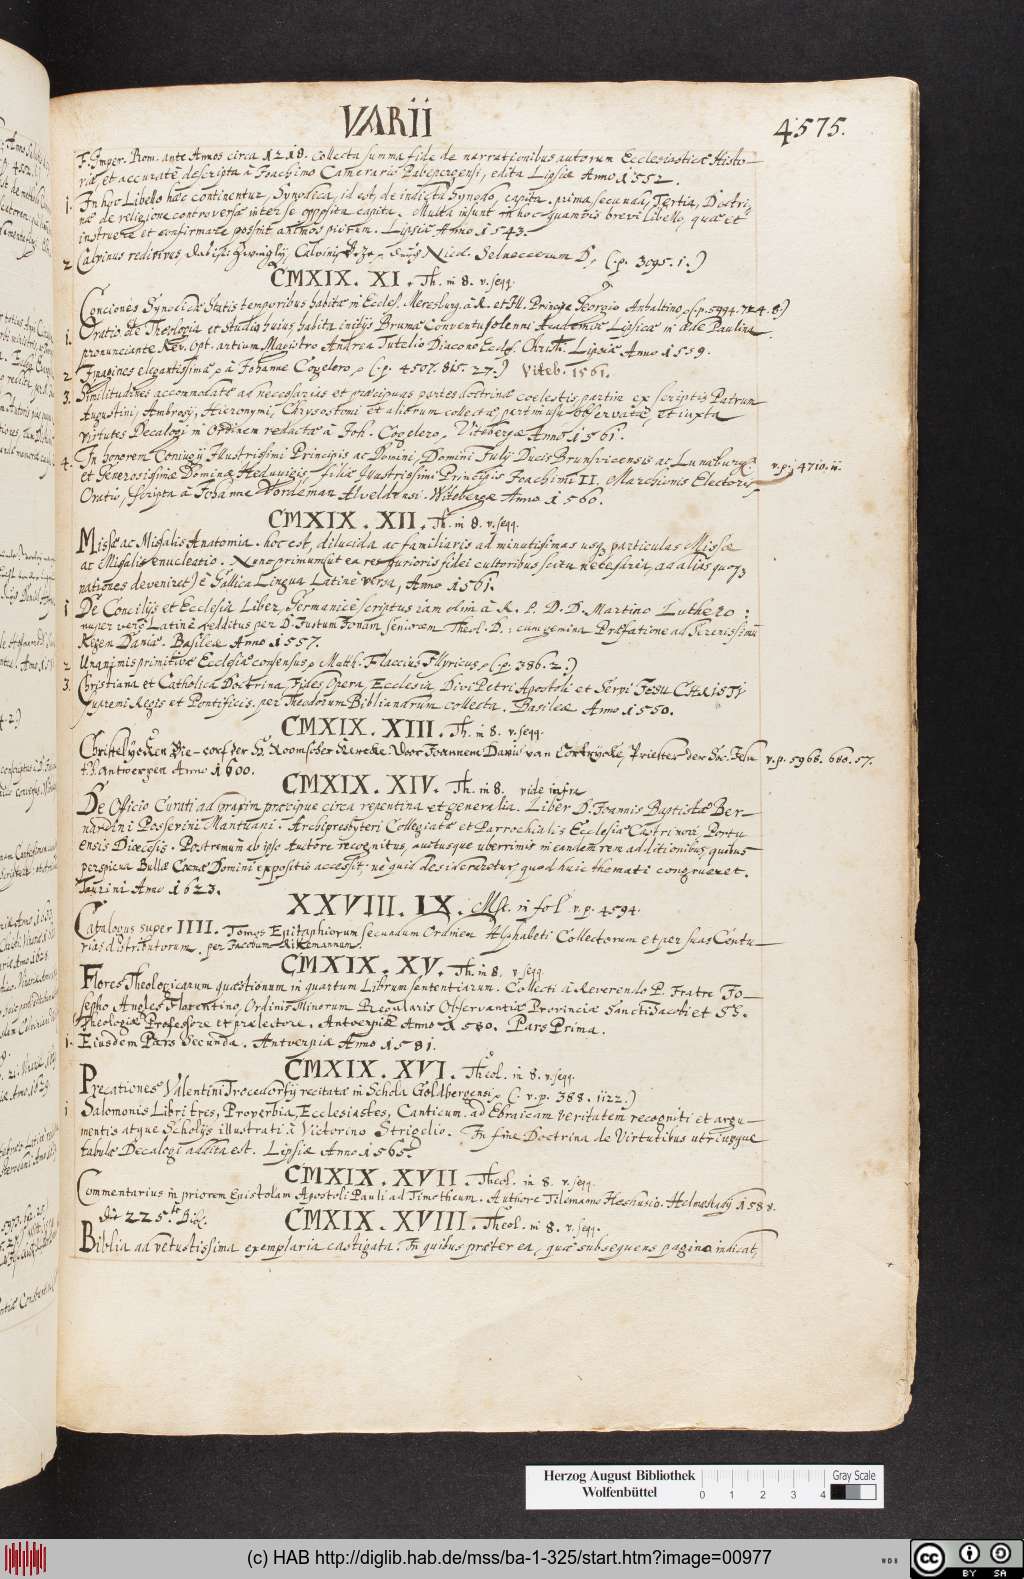 VARII
4575.
F. Imper. Rom. ante Annos circa 1218. collecta summa fide de narrationibus autorum Ecclesiasticæ Histo-
riæ et accuratè descripta à Joachimo Camerario Pabepergensi, edita Lipsiæ Anno 1552.
1. In hoc Libello hæc continentur, Synodica, id est, de indicta Synodo, capita. prima secunda, Tertia, Doctri-
næ de religione controversæ inter se opposita capita. Multa insunt in hoc quamvis brevi libello, quæ et
instruere et confirmare possint animos piorum. Lipsiæ Anno 1543.
2 Calvinus redivivus, Nicol. Selneccerum D. (:p. 3095. 1.)
CMXIX. XI. Th. in 8. v. seqq.
Conciones Synodicæ Statis temporibus habitæ in Eccles. Mersburg. à R. et Ill. Principe Georgio Anhaltino (:p. 5994. 724. 8.)
1. Oratio de Theologia et Studio huius habita initijs Brumæ Conventu solenni Academiæ Lipsicæ in æde Paulina
pronunciante Rev. Opt. artium Magistro Andrea Jutelio Diacono Eccles. Christi. Lipsiæ Anno 1559.
2 Imagines elegantissimæ à Johanne Cogelero (:p. 4507. 815. 27.) Viteb. 1561.
3. Similitudines accommodatæ ad necessarias et præcipuas partes doctrinæ coelestis, partim ex scriptis Patrum
Augustini, Ambrosij, Hieronymi, Chrysostomi et aliorum collectæ partim usu observatæ, et iuxta
virtutes Decalogi in Ordinem redactæ à Joh. Cogelero, Vitebergæ Anno 1561.
4. In honorem Coniugij Illustrissimi Principis ac Domini, Domini Julij Ducis Brunsvicensis ac Lunæburg.
et Generosissimæ Dominæ Heduuigis, filiæ Illustrissimi Principis Joachimi II. Marchionis Electoris
Oratio, scripta à Johanne Nordeman Alveldensi. Witebergæ Anno 1560.
v. p. 4710. ii.
CMXIX. XII. Th. in 8. v. seqq.
Missæ ac Missalis Anatomia. hoc est, dilucida ac familiaris ad minutissimas usq particulas Missæ
ac Missalis enucleatio. Nunc primum (ut ea res purioris fidei cultoribus scitu necessaria, ad alias quoq
nationes deveniret) è Gallica Lingua Latinè versa, Anno 1561.
1 De Concilijs et Ecclesia Liber, Germanicè scriptus iam olim à R. P. D. D. Martino Luthero:
nuper verò Latinè redditus per D. Justum Jonam seniorem Theol. D.: cum gemina Præfatione ad Serenissimū
Regem Daniæ. Basileæ Anno 1557.
2 Unanimis primitivæ Ecclesiæ consensus Matth. Flaccius Illyricus (:p. 386. 2.)
3. Christiana et Catholica Doctrina, Fides Opera, Ecclesia, Divi Petri Apostoli et Servi JESU CHRISTI
Supremi Regis et Pontificis. per Theodorum Bibliandrum collecta. Basileæ Anno 1550.
CMXIX. XIII. Th. in 8. v. seqq.
Christelycken Roomscher Kercke. door Joannem David van Cortrycke, Priester der Soc. Jesu
t'Hantwerpen Anno 1600.
v. p. 5968. 680. 57.
CMXIX. XIV. Th. in 8. vide infra
De Officio Curati ad praxim præcipuè circa repentina et generalia. Liber D. Joannis Baptistæ Ber-
nardini Possevini Mantuani. Archipresbyteri Collegiatæ et Parrochialis Ecclesiæ Castrinovi, Portu
ensis Dioecesis. Postremum ab ipso Autore recognitus, auctusque uberrimis in eandem rem additionibus, quibus
perspicua Bullæ Coenæ Domini expositio accessit, ne quid desideraretur, quod huic themati congrueret.
Taurini Anno 1623.
XXVIII. IX. Mst. in fol v. p. 4594.
Catalogus super IIII. Tomos Epitaphiorum secundum Ordinem Alphabeti Collectorum et per suas Centu-
rias distributorum. per Jacobum Rikemannum.
CMXIX. XV. Th. in 8. v. seqq.
Flores Theologicarum quæstionum in quartum Librum sententiarum. Collecti à Reverendo P. Fratre Jo-
sepho Angles Florentino, Ordinis Minorum Regularis Observantiæ Provinciæ Sancti Jacobi et SS.
Theologiæ Professore et prælectore. Antverpiæ Anno 1580. Pars Prima.
1. Eiusdem Pars Secunda. Antverpiæ Anno 1581.
CMXIX. XVI. Theol. in 8. v. seqq.
Precationes Valentini Trocedorfij recitatæ in Schola Goldbergensi (: v. p. 388. 1122.)
1 Salomonis Libri tres, Proverbia, Ecclesiastes, Canticum. ad Ebraicam veritatem recogniti et argu-
mentis atque Scholijs illustrati à Victorino Strigelio. In fine Doctrina de Virtutibus utriusque
tabulæ Decalogi addita est. Lipsiæ Anno 1565.
CMXIX. XVII. Theol. in 8. v. seqq.
Commentarius in priorem Epistolam Apostoli Pauli ad Timotheum. Authore Tilemanno Heshusio. Helmstadij 1588.
die 225.te Bibl.
CMXIX. XVIII. Theol. in 8. v. seqq.
Biblia ad vetustissima exemplaria castigata. In quibus præter ea, quæ subsequens pagina indicat,
Herzog August Bibliothek
Wolfenbüttel
0 1 2 3 4
Gray Scale
(c) HAB http://diglib.hab.de/mss/ba-1-325/start.htm?image=00977
WDB
cc BY SA